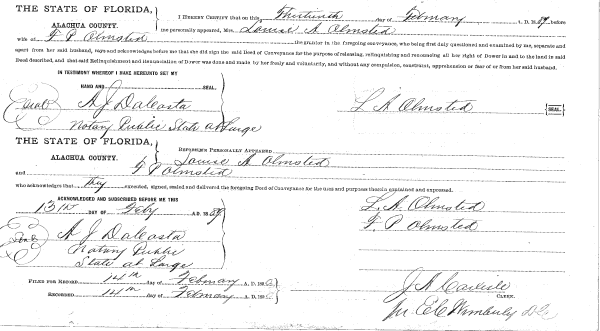 THE STATE OF FLORIDA,
ALACHUA COUNTY.
I HEREBY CERTIFY that on this Thirteenth day of February A. D. 1889, before
me personally appeared, Mrs. Louise A Olmsted
wife of F P Olmsted the grantor in the foregoing conveyance, who being first duly questioned and examined by me, separate and
apart from her said husband, says and acknowledges before me that she did sign the said Deed of Conveyance for the purpose of releasing, relinquishing and renouncing all her right of Dower in and to the land in said
Deed described, and that said Relinquishment and Renunciation of Dower was done and made by her freely and voluntarily, and without any compulsion, constraint, apprehension or fear of or from her said husband.
IN TESTIMONY WHEREOF I HAVE HEREUNTO SET MY
HAND AND SEAL.
Seal A J Dacosta L A Olmsted SEAL
Notary Public State at Large
THE STATE OF FLORIDA,
ALACHUA COUNTY.
PERSONALLY APPEARED
Louise A Olmsted
and F P Olmsted
who acknowledges that they executed, signed, sealed and delivered the foregoing Deed of Conveyance for the uses and purposes therein contained and expressed.
ACKNOWLEDGED AND SUBSCRIBED BEFORE ME THIS L. A. Olmsted
13th DAY OF Feby A.D. 1889. F. P Olmsted
Seal A J Dacosta
Notary Public
State at Large
FILED FOR RECORD 14th day of February A. D. 1889 J A Carlisle
CLERK.
RECORDED 14th day of February A. D. 1889 pr E C Wimberly D.C.